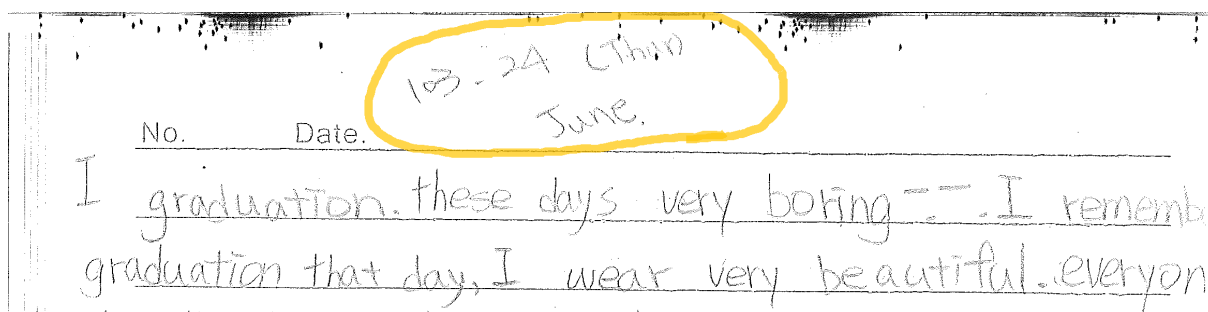 103-24 (Thur)
June.
No. Date.
I graduation. these days very boring --. I rememb
graduation that day, I wear very beautiful. everyon